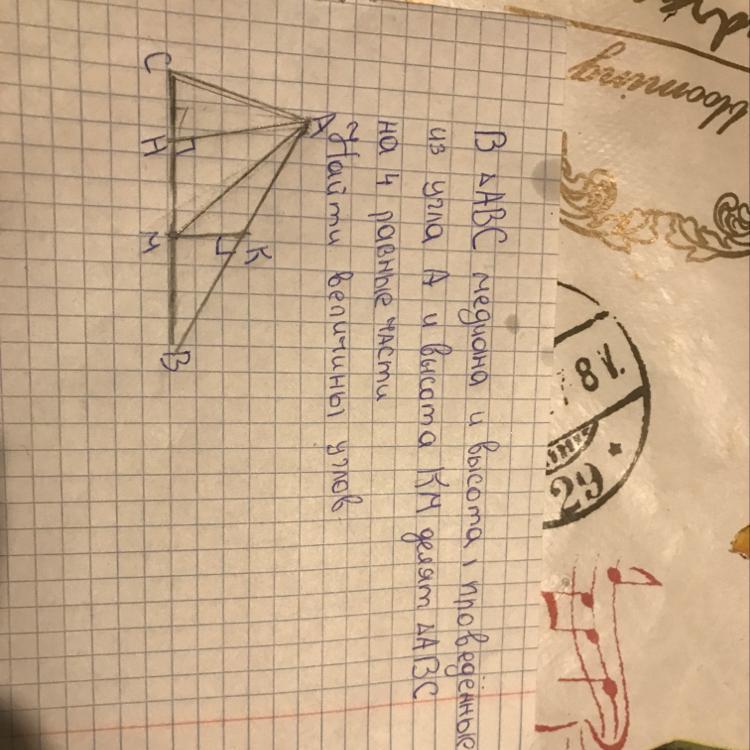 В △ABC медиана и высота, проведённые
из угла А и высота КМ делят △ABC
на 4 равные части
Найти величины углов.
A
C
H
M
K
B
blooming
8 V.
29